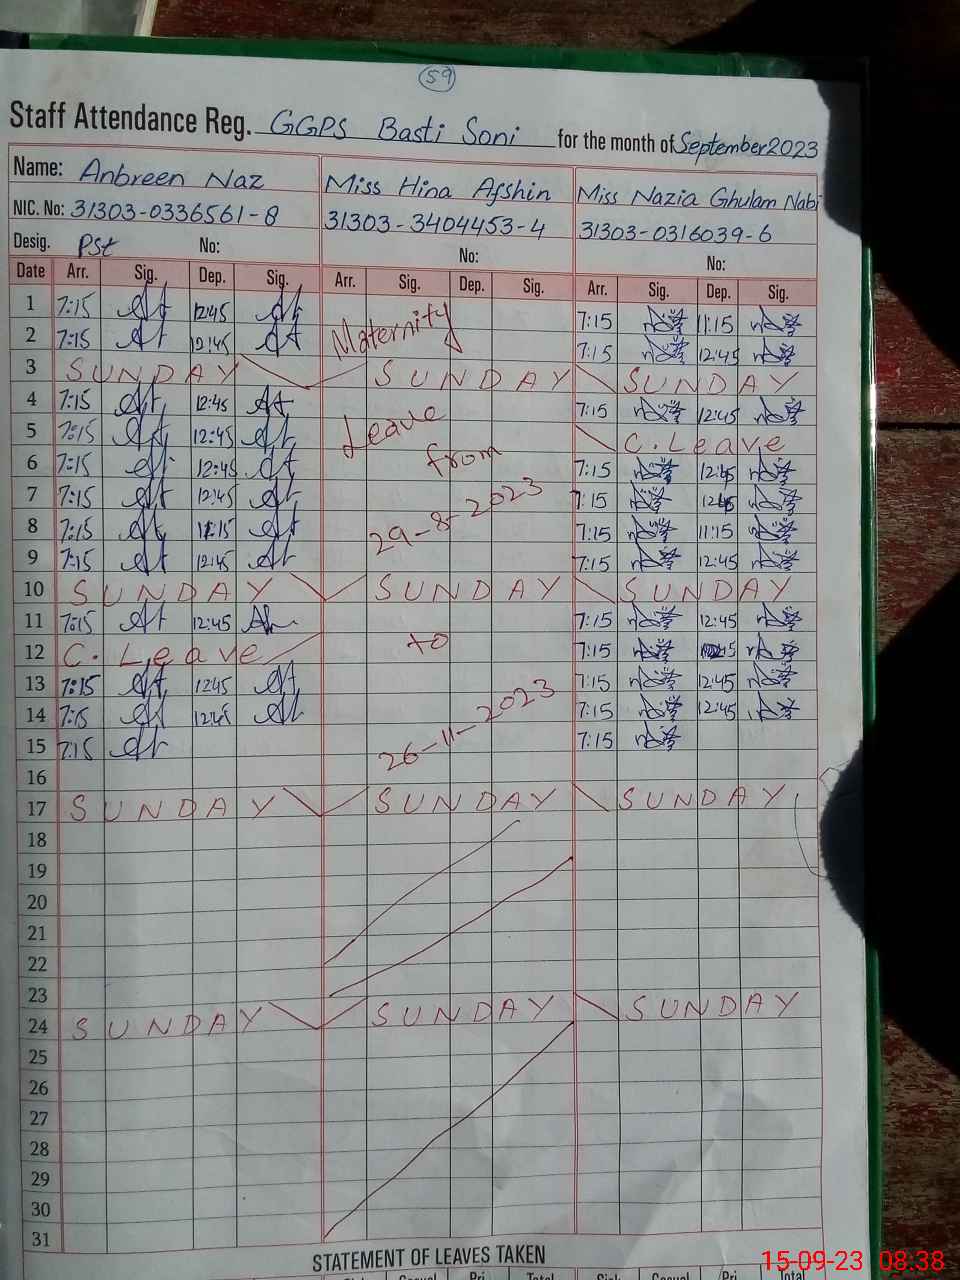 59
Staff Attendance Reg. GGPS Basti Soni for the month of September 2023
Name: Anbreen Naz Miss Hina Afshin Miss Nazia Ghulam Nabi
NIC. No: 31303-0336561-8 31303-3404453-4 31303-0316039-6
Desig. Pst No: No: No:
Date Arr. Sig. Dep. Sig. Arr. Sig. Dep. Sig. Arr. Sig. Dep. Sig.
1 7:15 12:45 Maternity 7:15 11:15
2 7:15 12:45 7:15 12:45
3 SUNDAY SUNDAY SUNDAY
4 7:15 12:45 Leave 7:15 12:45
5 7:15 12:45 C. Leave
6 7:15 12:45 from 7:15 12:45
7 7:15 12:45 29-8-2023 7:15 12:45
8 7:15 11:15 7:15 11:15
9 7:15 12:45 7:15 12:45
10 SUNDAY SUNDAY SUNDAY
11 7:15 12:45 7:15 12:45
12 C. Leave to 7:15
13 7:15 1245 7:15 12:45
14 7:15 12:45 26-11-2023 7:15 12:45
15 7:15 7:15
16
17 SUNDAY SUNDAY SUNDAY
18
19
20
21
22
23
24 SUNDAY SUNDAY SUNDAY
25
26
27
28
29
30
31
STATEMENT OF LEAVES TAKEN
Casual Pri. Total Sick Casual Pri. Total
15-09-23 08:38